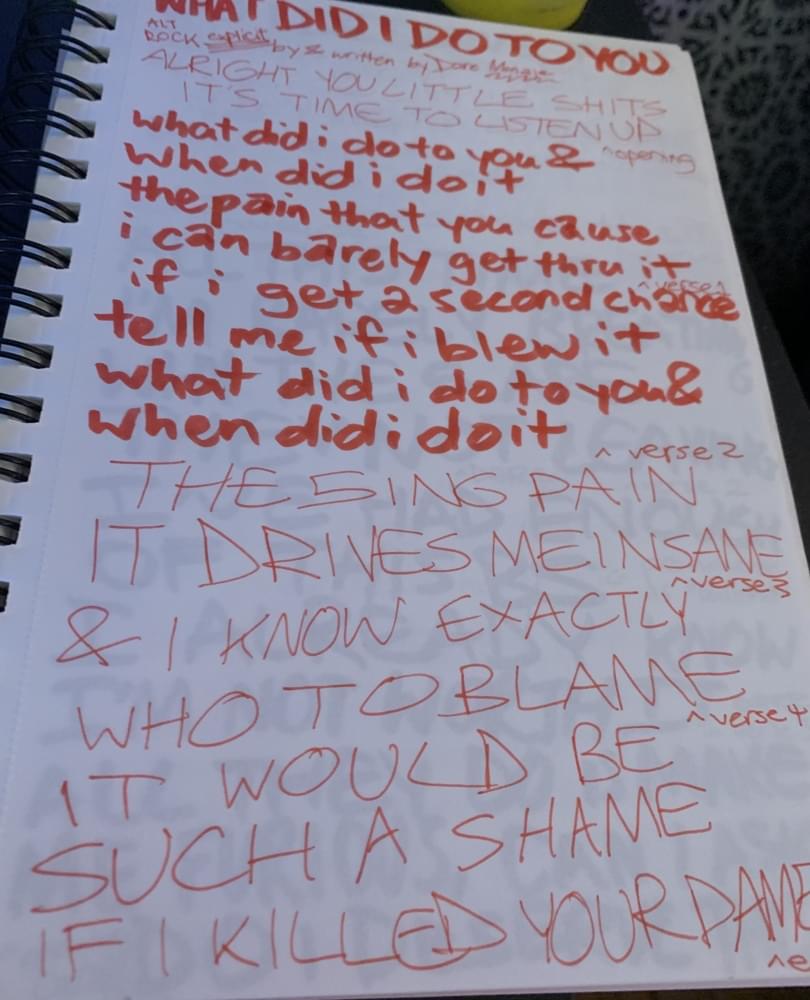 WHAT DID I DO TO YOU
ALT
ROCK explicit by & written by Dare
ALRIGHT YOU LITTLE SHITS
IT'S TIME TO LISTEN UP
what did i do to you & ^opening
when did i do it
the pain that you cause
i can barely get thru it
^verse1
if i get a second chance
tell me if i blew it
what did i do to you &
when did i do it
^ verse 2
THE 5ING PAIN
IT DRIVES ME INSANE
^verse3
& I KNOW EXACTLY
WHO TO BLAME
^verse4
IT WOULD BE
SUCH A SHAME
IF I KILLED YOUR DAME
^e